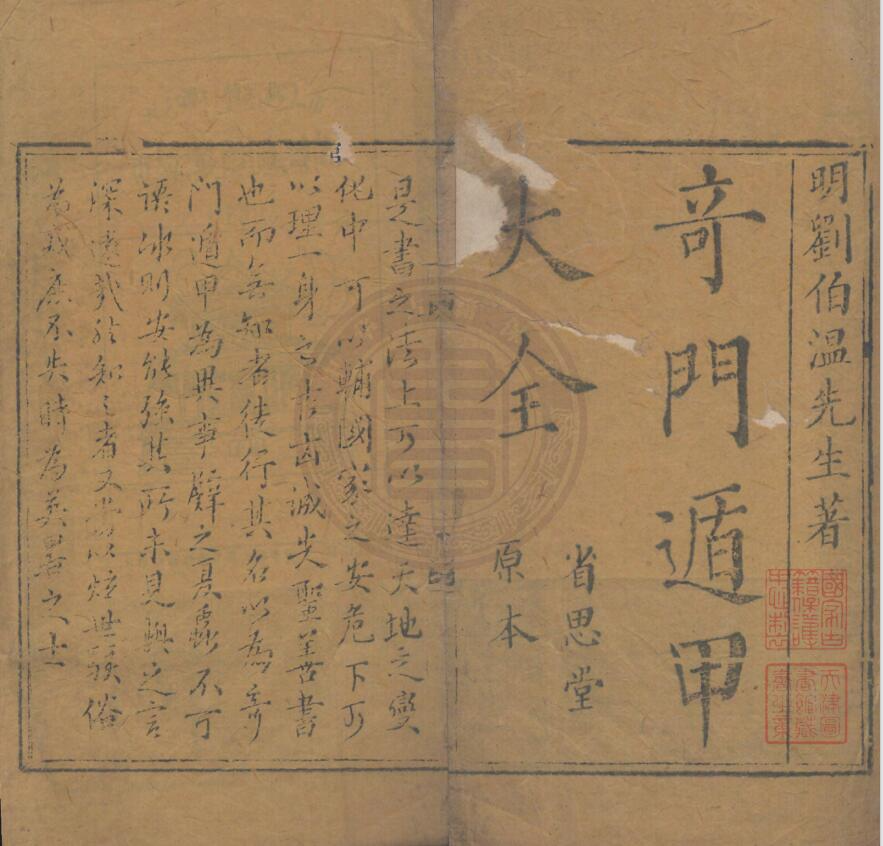 明劉伯温先生著
奇門遁甲
大全
省思堂
原本
是書之法上可以達天地之變
化中可以輔國家之安危下可
以理一身之吉凶誠失聖善書
也而無知者徒行其名以為奇
門遁甲為異事譬之夏蟲不可
語冰則安能強其所未見與之言
深遠哉於知之者又當以炫世駭俗
為戒庶不失時為英畧之士
國家古
籍保護
中心製
天津圖
書館藏